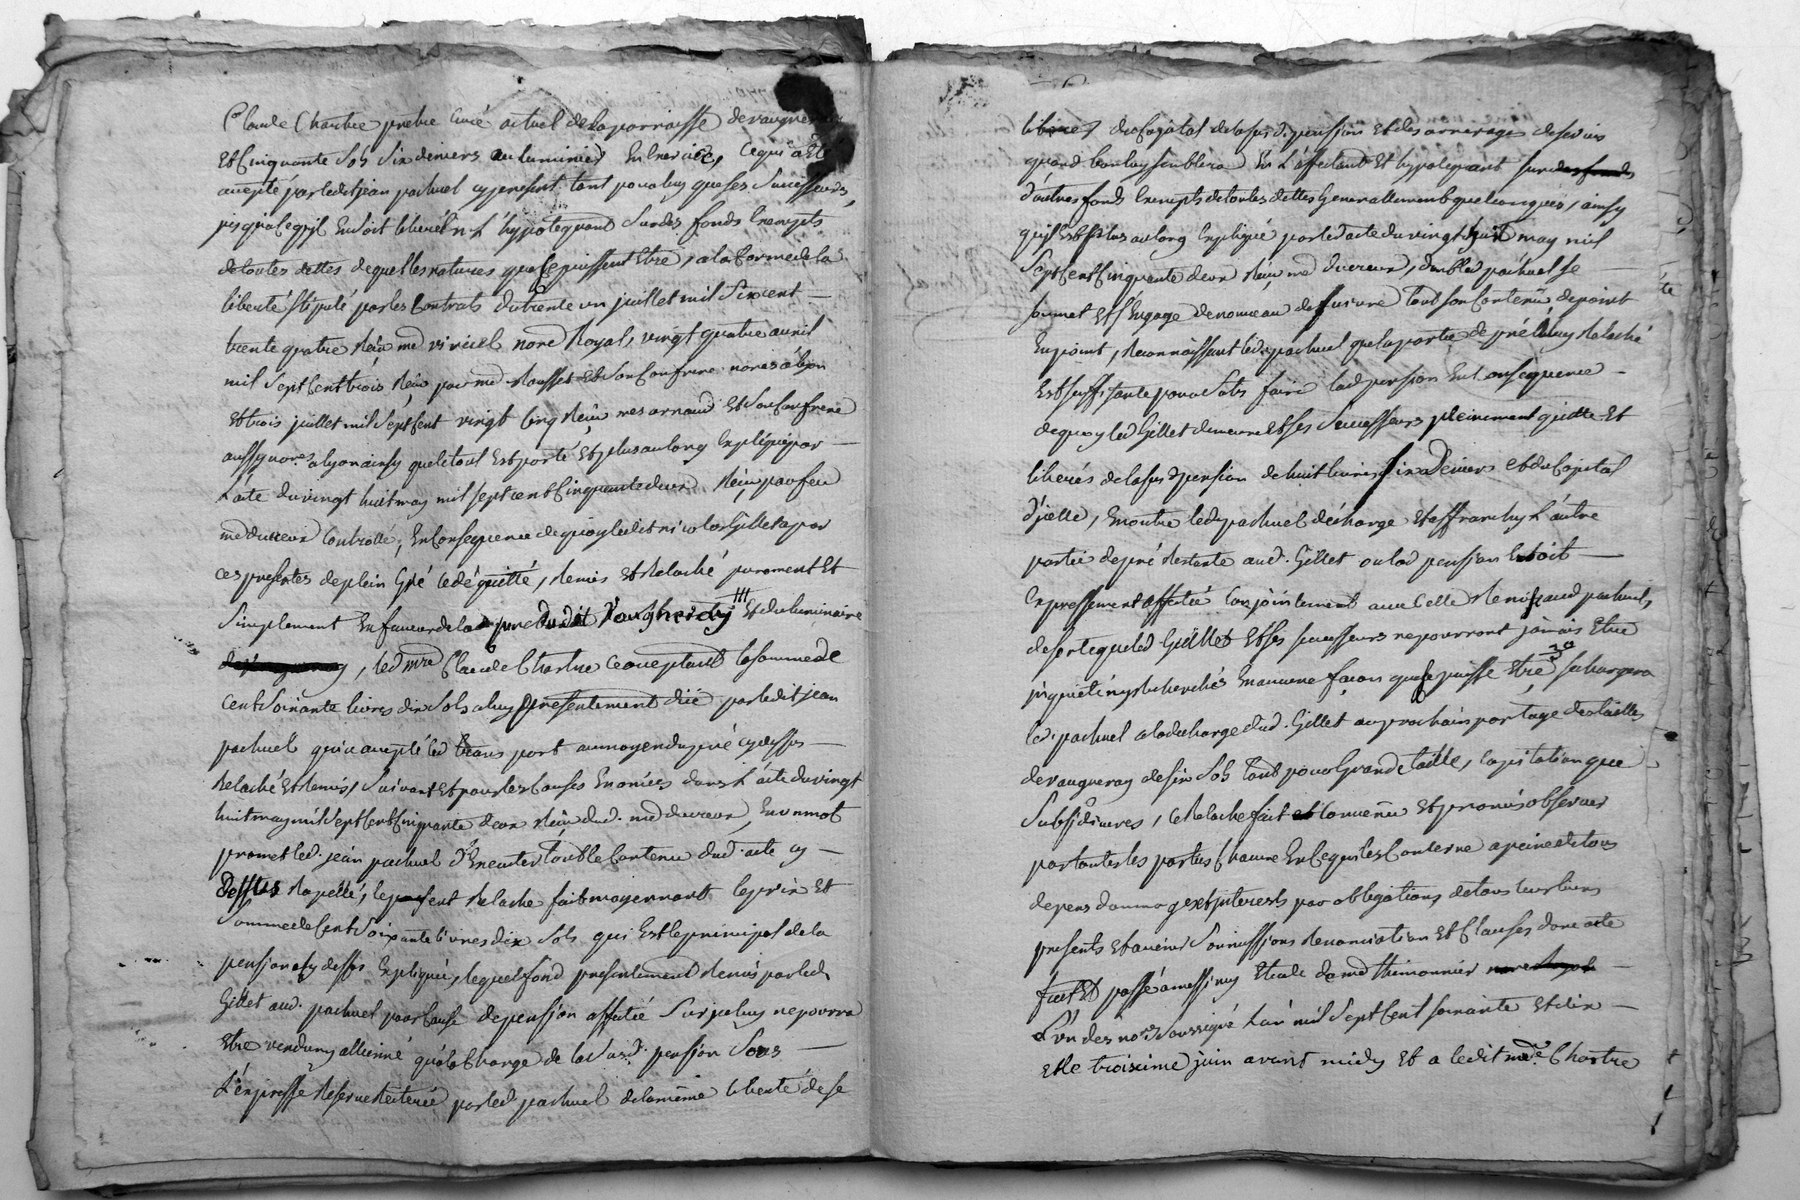 Claude Chartre pretre Curé actuel de la parroisse de vaugneray
Et Cinquante Sols Six deniers au luminier En Exercice, Ce qui a Eté
accepté par ledit jean pachuel cy present tant pour luy que ses Successeurs
jusqu'a Ce qu'il En Soit liberé En L'hypotequant Sur des fonds Exempts
de toutes dettes de quelles natures que Ce puissent Etre, a la forme de la
liberté Stipulé par les Contrats du trente un juillet mil Six cent
trente quatre Reçu me viricel nore Royal, vingt quatre avril
mil Sept Cent trois Reçu par me Rousset Et Son Confrere nores a lyon
Et trois juillet mil Sept Cent vingt Cinq Reçu mes arnaud Et Son Confrere
aussy nores a lyon ainsy que le tout Est porté Et plus au long Expliqué par
L'acte du vingt huit may mil Sept cent Cinquante deux Reçu par feu
me ducreux Controllé; En Consequence de quoy ledit nicolas Gillet a par
ces presentes de plein Gré Cedé quitté, Remis Et Relaché purement Et
Simplement En faveur de la cure dudit Vaugneray Et du luminaire
, led mre Claude Chartre Ce acceptant la Somme de
Cent Soixante livres dix Sols a luy presentement düe par ledit jean
pachuel qui a accepté led trans port au moyen du pré cy dessus
Relaché Et Remis, Suivant Et pour les Causes Enoncées dans L'acte du vingt
huit may mil Sept Cent Cinquante deux Reçu dud. me ducreux, En un mot
promet led. jean pachuel d'Executer tout le Contenu dud. acte cy
dessus Rapellé, le present Relache fait moyennant le prix Et
Somme de Cent Soixante livres dix Sols qui Est le principal de la
pension cy dessus Expliquée, lequel fond presentement Remis par led.
Gillet aud. pachuel pour Cause de pension affecté Sur jceluy ne pourra
Etre vendu ny allienné qu'a la Charge de la Susd. pension Sous
L'expresse Reserve Reiterée par led pachuel de la même liberté de se
liberer du Capital de la Susd. pension Et des arrerages de Six ins
quand bon luy Semblera En L'affectant Et hypotequant
d'autres fonds Exempts de toutes dettes Generallement quelconques, ainsy
qu'il Est plus au long Expliqué par led acte du vingt huit may mil
Sept Cent Cinquante deux Reçu me ducreux, dont led pachuel se
soumet Et S'Engage de nouveau de Suivre tout Son Contenu de point
En point, Reconnaissant led. pachuel que la partie de pré a luy Relaché
Est Suffisante pour Satis faire lad pension En Consequence
de quoy led Gillet demeure Et Ses Successeurs pleinement quitte Et
liberés de la Susd pension de huit livres Six Deniers Et du Capital
d'jcelle, En outre led pachuel décharge Et affranchy L'autre
partie de pré Restante aud. Gillet ou lad pension Etoit
Expressement affectée Conjointement avec Celle Remise aud pachuel,
de sorte que led Gillet Et Ses Successeurs ne pourront jamais Etre
jnquietés ny Recherchés En aucune façon que Ce puisse Etre Se chargera
led. pachuel a la decharge dud. Gillet au prochain partage des tailles
de vaugneray de Six Sols tant pour Grande taille, Capitation que
Subsidiaires, Ce Relache fait Convenu Et promis observer
par toutes les parties Chacune En Ce qui les Concerne a peine de tous
depens dommages Et jnterests par obligations de tous leurs biens
presents Et avenir Soumissions Renonciation Et Clauses dont acte
fait Et passé a messimy Etude de me thimonnier
L'un des nores Soussigné L'an mil Sept Cent Soixante Et dix
Et le troisieme juin avant midy Et a ledit me Chartre